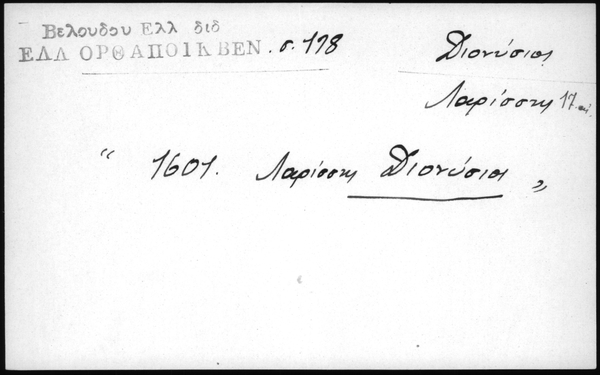 Βελουδου Ελλ διδ
ΕΛΛ ΟΡΘ ΑΠΟΙΚ ΒΕΝ. σ. 178
Διονύσιος
Λαρίσσης 17 αι.
“ 1601. Λαρίσσης Διονύσιος „